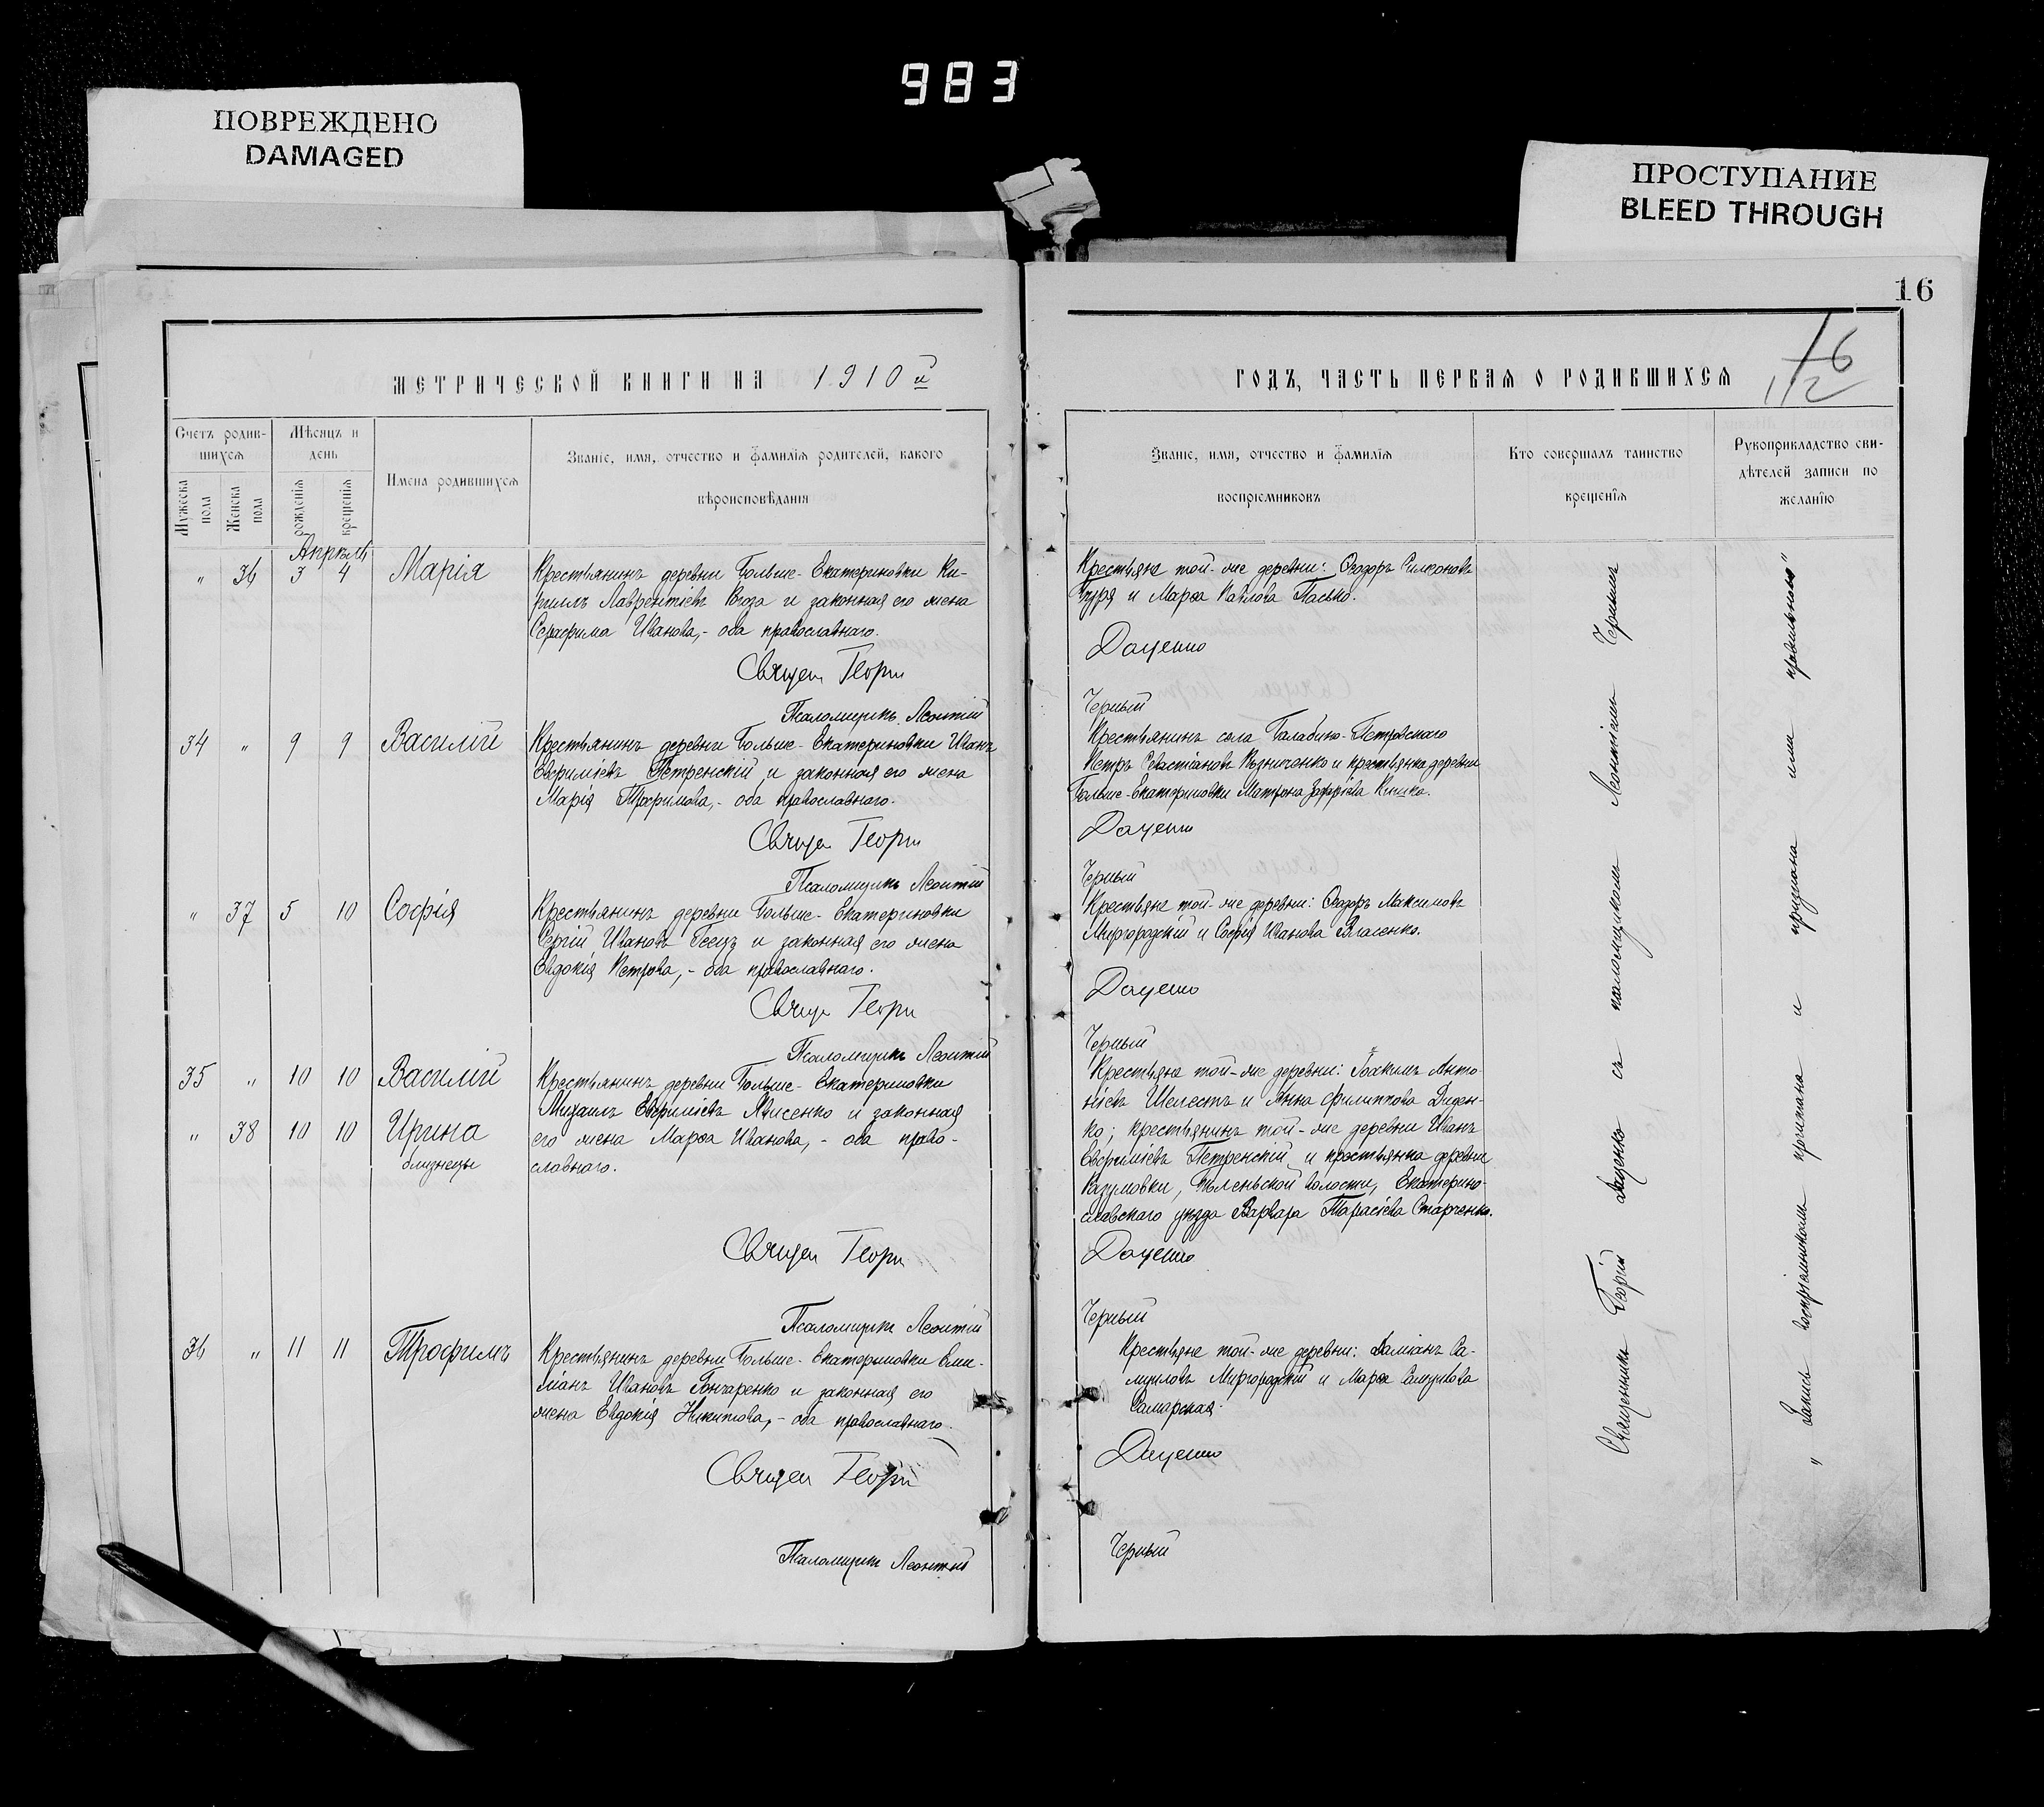 983
ПОВРЕЖДЕНО
DAMAGED
ПРОСТУПАНИЕ
BLEED THROUGH
16
16
112
МЕТРИЧЕСКОЙ КНИГИ НА 1910 й
Счетъ родив-
шихся
Мѣсяцъ и
день
Имена родившихся
Званіе, имя, отчество и фамилія родителей, какого
вѣроисповѣданія
Мужеска
пола
Женска
пола
рожденія
крещенія
Апрѣль
" 36 3 4 Марія
Крестьянинъ деревни Больше-Екатериновки Ки-
риллъ Лаврентіевъ и законная его жена
Серафима Иванова,- оба православнаго.
Священ Георги
Псаломщикъ Леонтій
34 " 9 9 Василій
Крестьянинъ деревни Больше-Екатериновки Иванъ
Евфиміевъ Петренскій и законная его жена
Марія Трофимова,- оба православнаго.
Священ Георги
Псаломщикъ Леонтій
" 37 5 10 Софія
Крестьянинъ деревни Больше-Екатериновки
Сергій Ивановъ и законная его жена
Евдокія Петрова,- оба православнаго.
Священ Георги
Псаломщикъ Леонтій
35 " 10 10 Василій
" 38 10 10 Ирина
близнецы
Крестьянинъ деревни Больше-Екатериновки
Михаилъ Евфиміевъ и законная
его жена Марѳа Иванова,- оба право-
славнаго.
Священ Георги
Псаломщикъ Леонтій
36 " 11 11 Трофимъ
Крестьянинъ деревни Больше-Екатериновки Еми-
ліанъ Ивановъ Гончаренко и законная его
жена Евдокія Никитова,- оба православнаго.
Священ Георги
Псаломщикъ Леонтій
ГОДЪ, ЧАСТЬ ПЕРВАЯ О РОДИВШИХСЯ
Званіе, имя, отчество и фамилія
воспріемниковъ
Кто совершалъ таинство
крещенія
Рукоприкладство сви-
дѣтелей записи по
желанію
Крестьяне той-же деревни: Ѳеодоръ Симеоновъ
и Марѳа Павлова Пасько.
Даценко
Черный
Крестьянинъ села Балабино-Петровскаго
Петръ Севастіановъ и крестьянка деревни
Больше-Екатериновки Матрона
Даценко
Черный
Крестьяне той-же деревни: Ѳеодоръ Максимовъ
Миргородскій и Софія Иванова Власенко.
Даценко
Черный
Крестьяне той-же деревни: Іоакимъ Анто-
ніевъ Шелестъ и Анна Филиппова Диден-
ко; крестьянинъ той-же деревни Иванъ
Евфиміевъ Петренскій и крестьянка деревни
Разумовки, волости, Екатерино-
славскаго уѣзда Варвара Тарасіева Старченко.
Даценко
Черный
Крестьяне той-же деревни: Даміанъ Са-
муиловъ Миргородскій и Марѳа Самуилова
Самарская.
Даценко
Черный
Священникъ Георгій Даценко съ псаломщикомъ Леонтіемъ Чернымъ
" Запись воспріемниками прочитана и признана ими правильною"